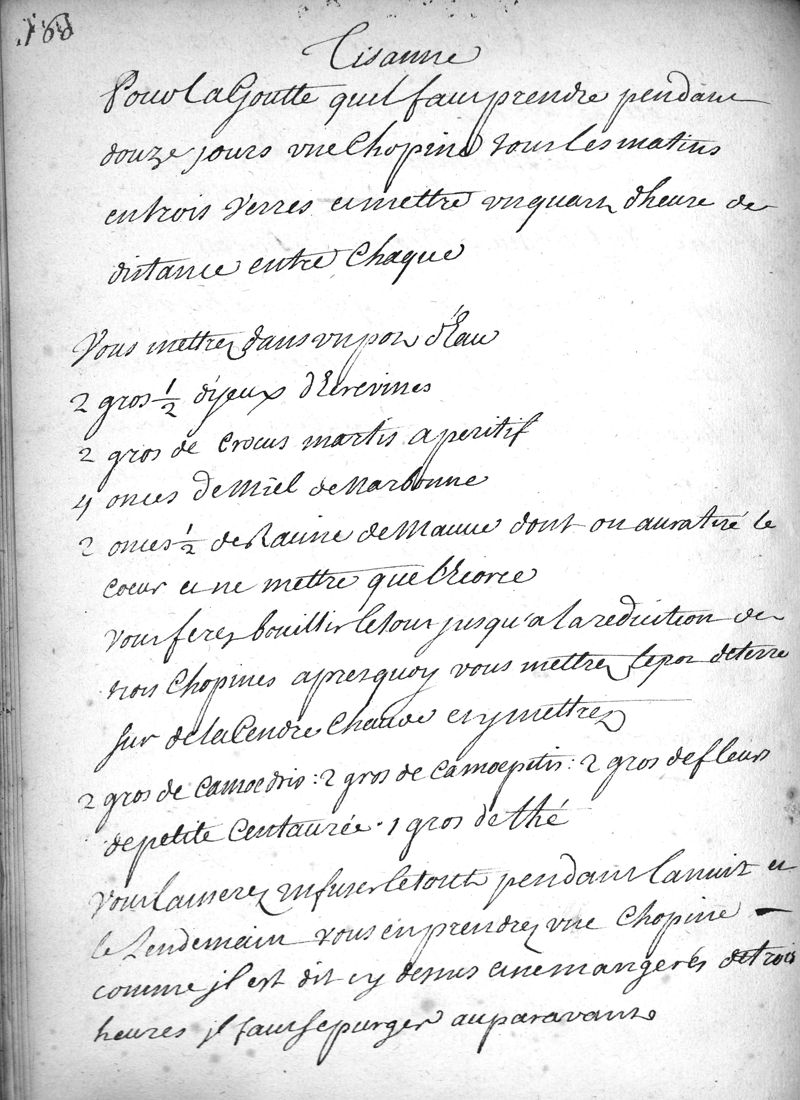 168
Tisanne
Pour La Goutte quil faut prendre pendant
douze jours vne Chopine tous les matins
en trois verres et mettre vn quart dheure de
distance entre Chaque
Vous mettrez dans vn pot d'Eau
2 gros 1/2 d'yeux d'Ecrevisses
2 gros de crocus martis aperitif
4 onces de Miel de Narbonne
2 onces 1/2 de Racine de Mauue dont on aura tiré le
coeur et ne mettre que l'Ecorce
vous ferez bouillir le tout jusqu'a la reduction de
trois Chopines apres quoy vous mettrez le pot de terre
sur de la Cendre Chaude et y mettrez
2 gros de camoedris : 2 gros de camoepitis : 2 gros de fleurs
de petite Centaurée . 1 gros de thé
Vous laisserez infuser le tout pendant la nuit et
le Lendemain vous en prendrez vne Chopine
comme jl est dit cy dessus et ne mangerés de trois
heures jl faut se purger auparavant